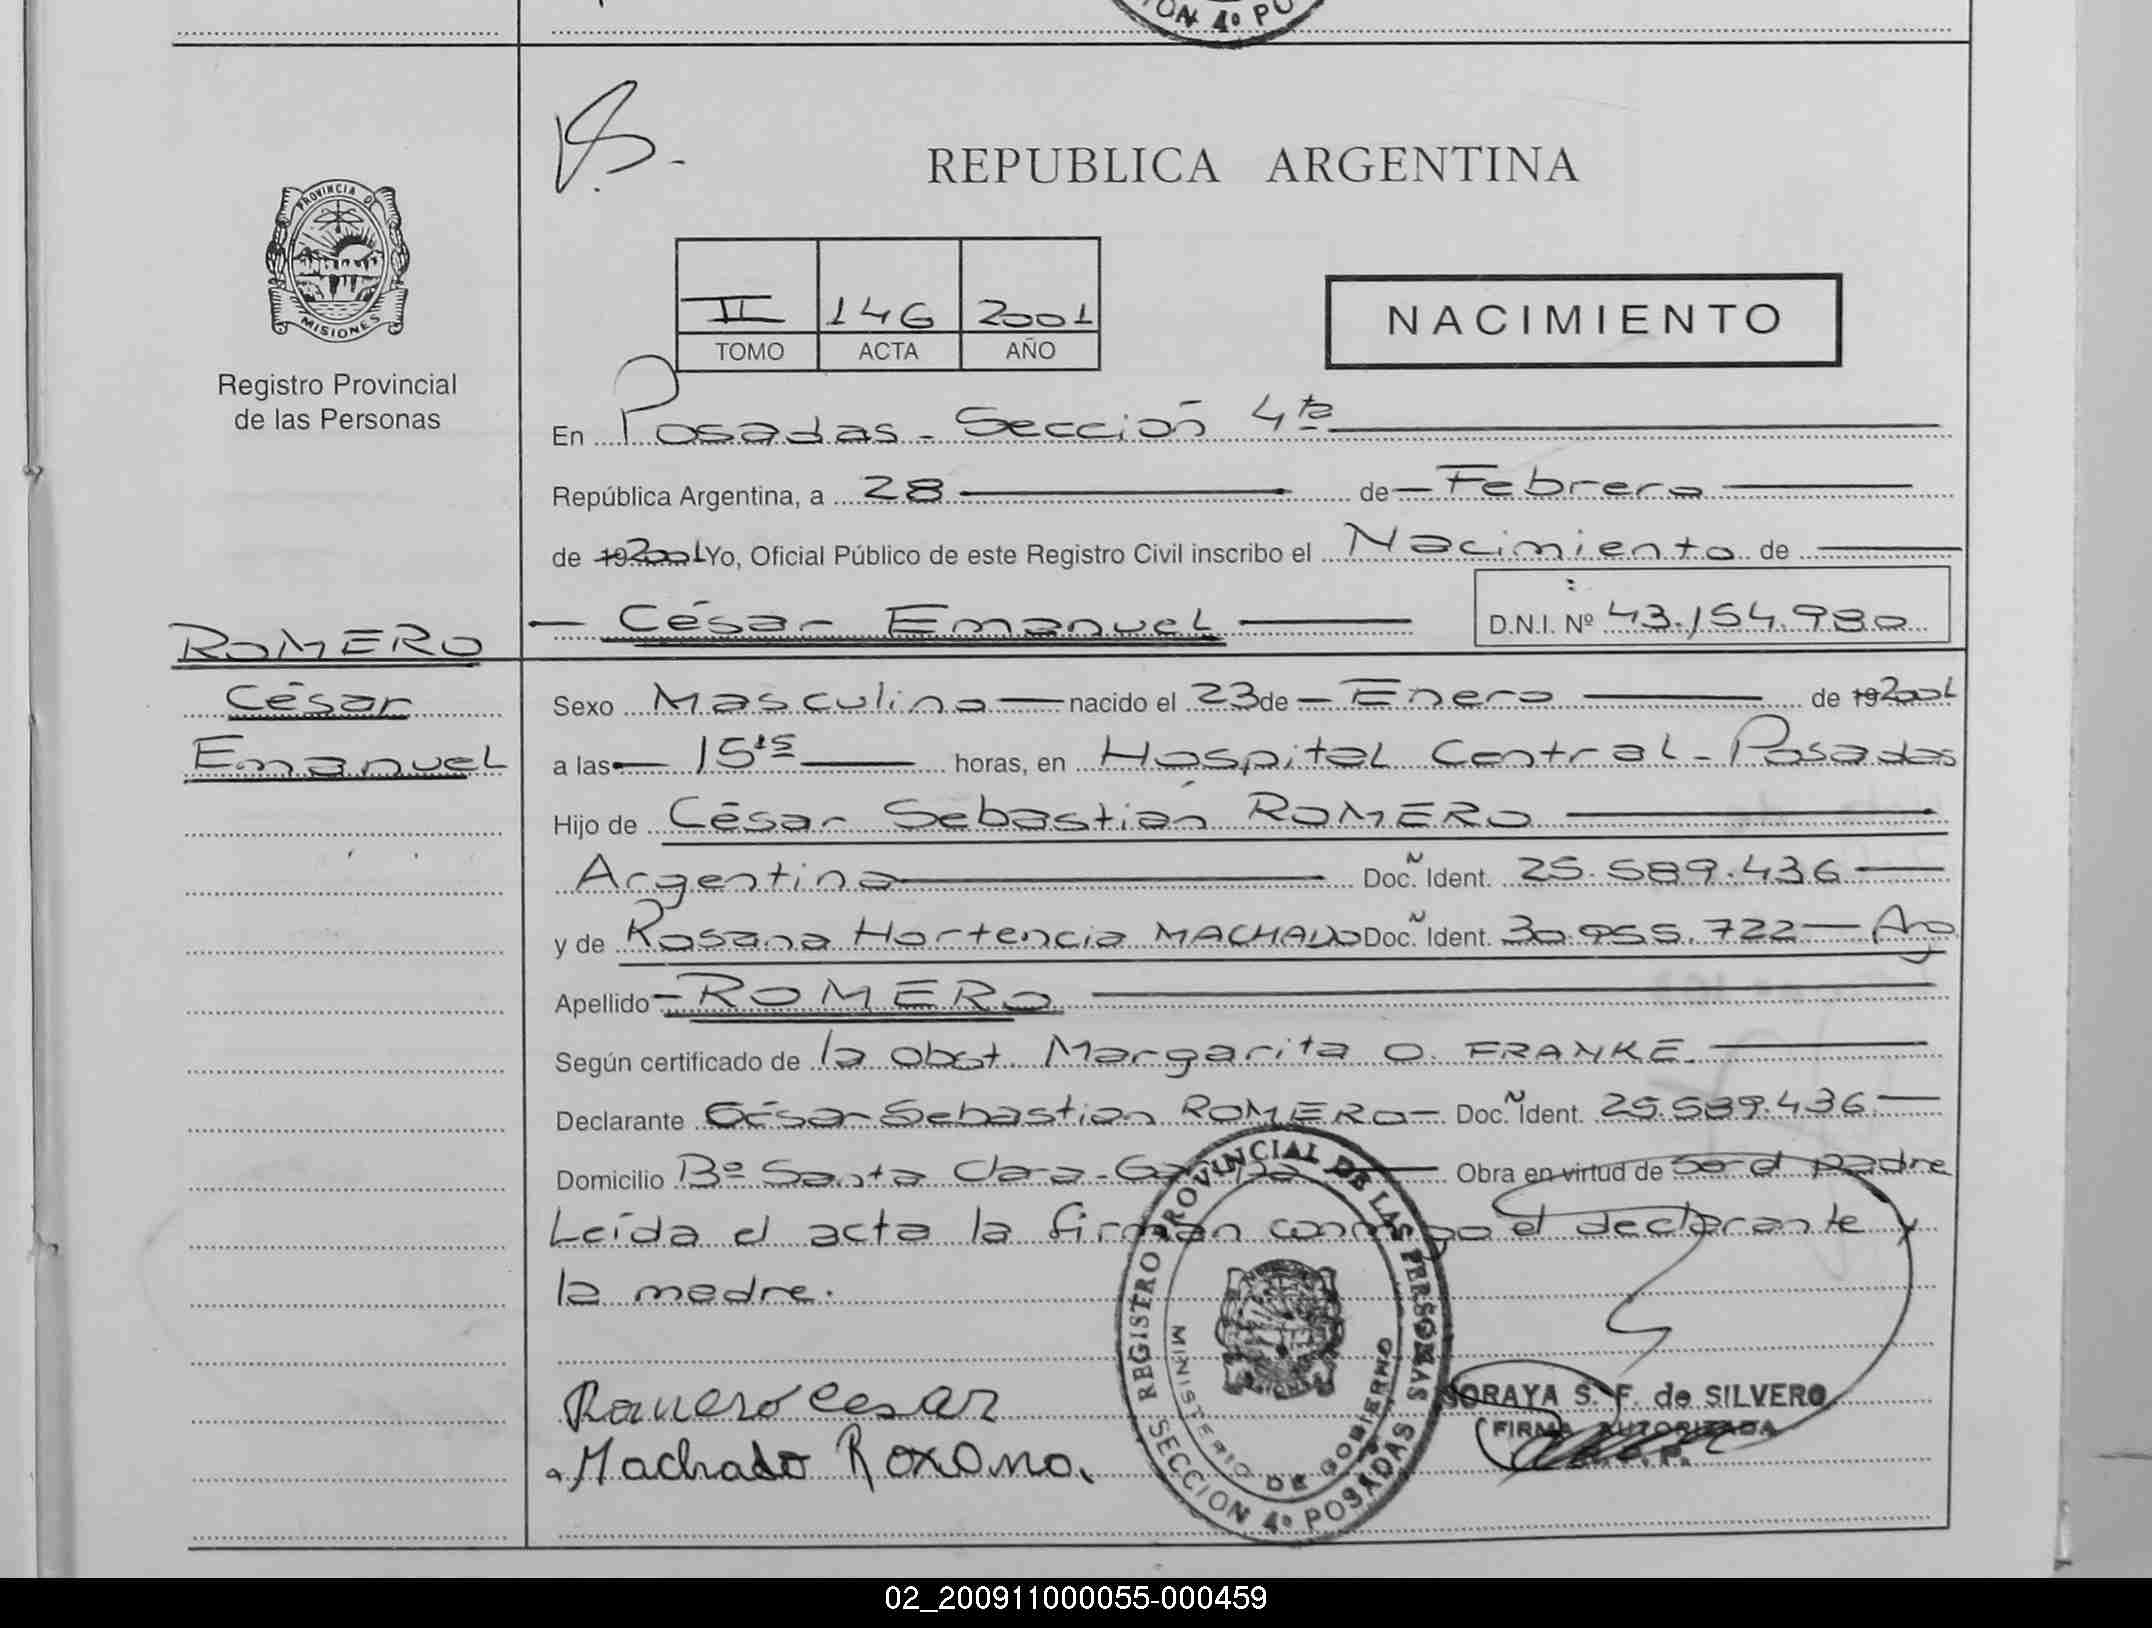 ION 4º PO
REPUBLICA ARGENTINA
PROVINCIA DE
MISIONES
Registro Provincial
de las Personas
II 146 2001
TOMO ACTA AÑO
NACIMIENTO
En Posadas - Sección 4ta
República Argentina, a 28 de Febrero
de 19 2001 Yo, Oficial Público de este Registro Civil inscribo el Nacimiento de
César Emanuel D.N.I. Nº 43.154.980
ROMERO
César
Emanuel
Sexo Masculino nacido el 23 de Enero de 19 2001
a las 15 15 horas, en Hospital Central - Posadas
Hijo de César Sebastián ROMERO
Argentina Doc. Ident. 25.589.436
y de Rosana Hortencia MACHADO Doc. Ident. 30.955.722 - Arg
Apellido ROMERO
Según certificado de la obst. Margarita O. FRANKE.
Declarante César Sebastian ROMERO - Doc. Ident. 25.589.436
Domicilio Bº Santa Clara - Obra en virtud de ser el padre
Leída el acta la firman conmigo el declarante y
la madre.
Romero Cesar
Machado Roxana.
REGISTRO PROVINCIAL DE LAS PERSONAS
MINISTERIO DE GOBIERNO
SECCION 4º POSADAS
SORAYA S. F. de SILVERO
FIRMA AUTORIZADA
02_200911000055-000459